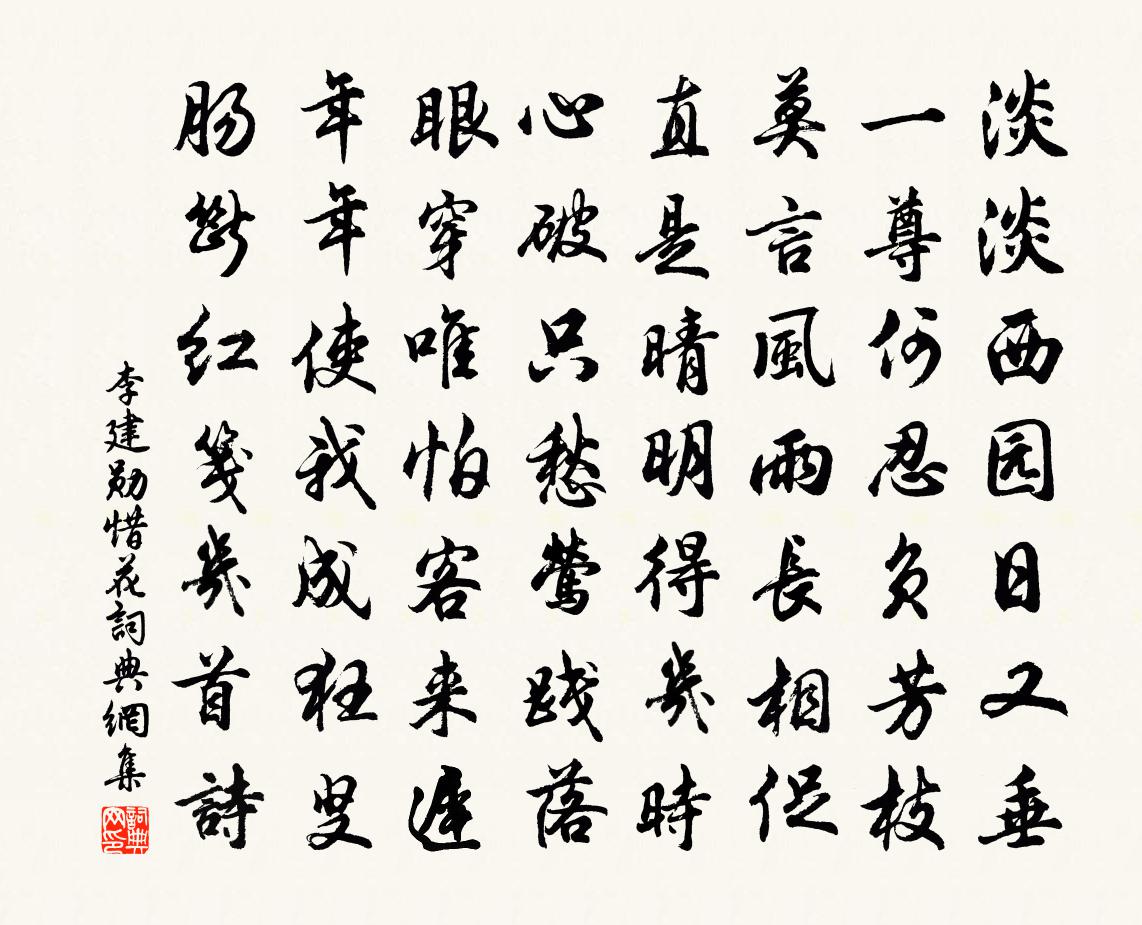 淡淡西园日又垂
一尊何忍负芳枝
莫言風雨長相促
直是晴明得幾時
心破只愁鶯踐落
眼穿唯怕客来遲
年年使我成狂叟
肠斷红箋幾首詩
李建勋惜花詞典網集
詞典网印